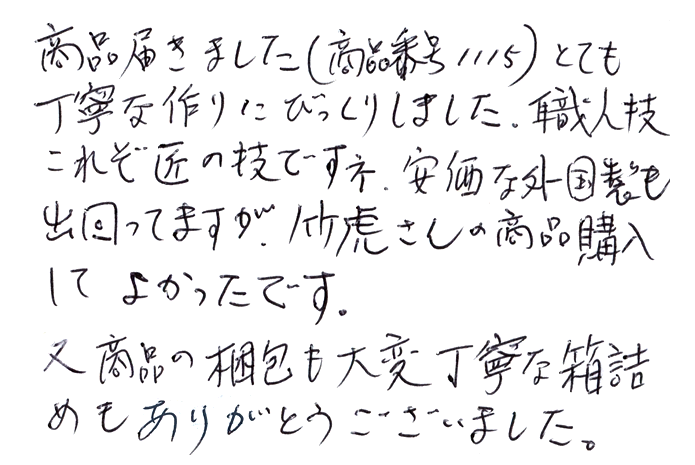 商品届きました(商品番号1115)とても
丁寧な作りにびっくりしました。職人技
これぞ匠の技ですネ。安価な外国製も
出回ってますが、竹虎さんの商品購入
して よかったです。
又商品の梱包も大変丁寧な箱詰
めもありがとうございました。